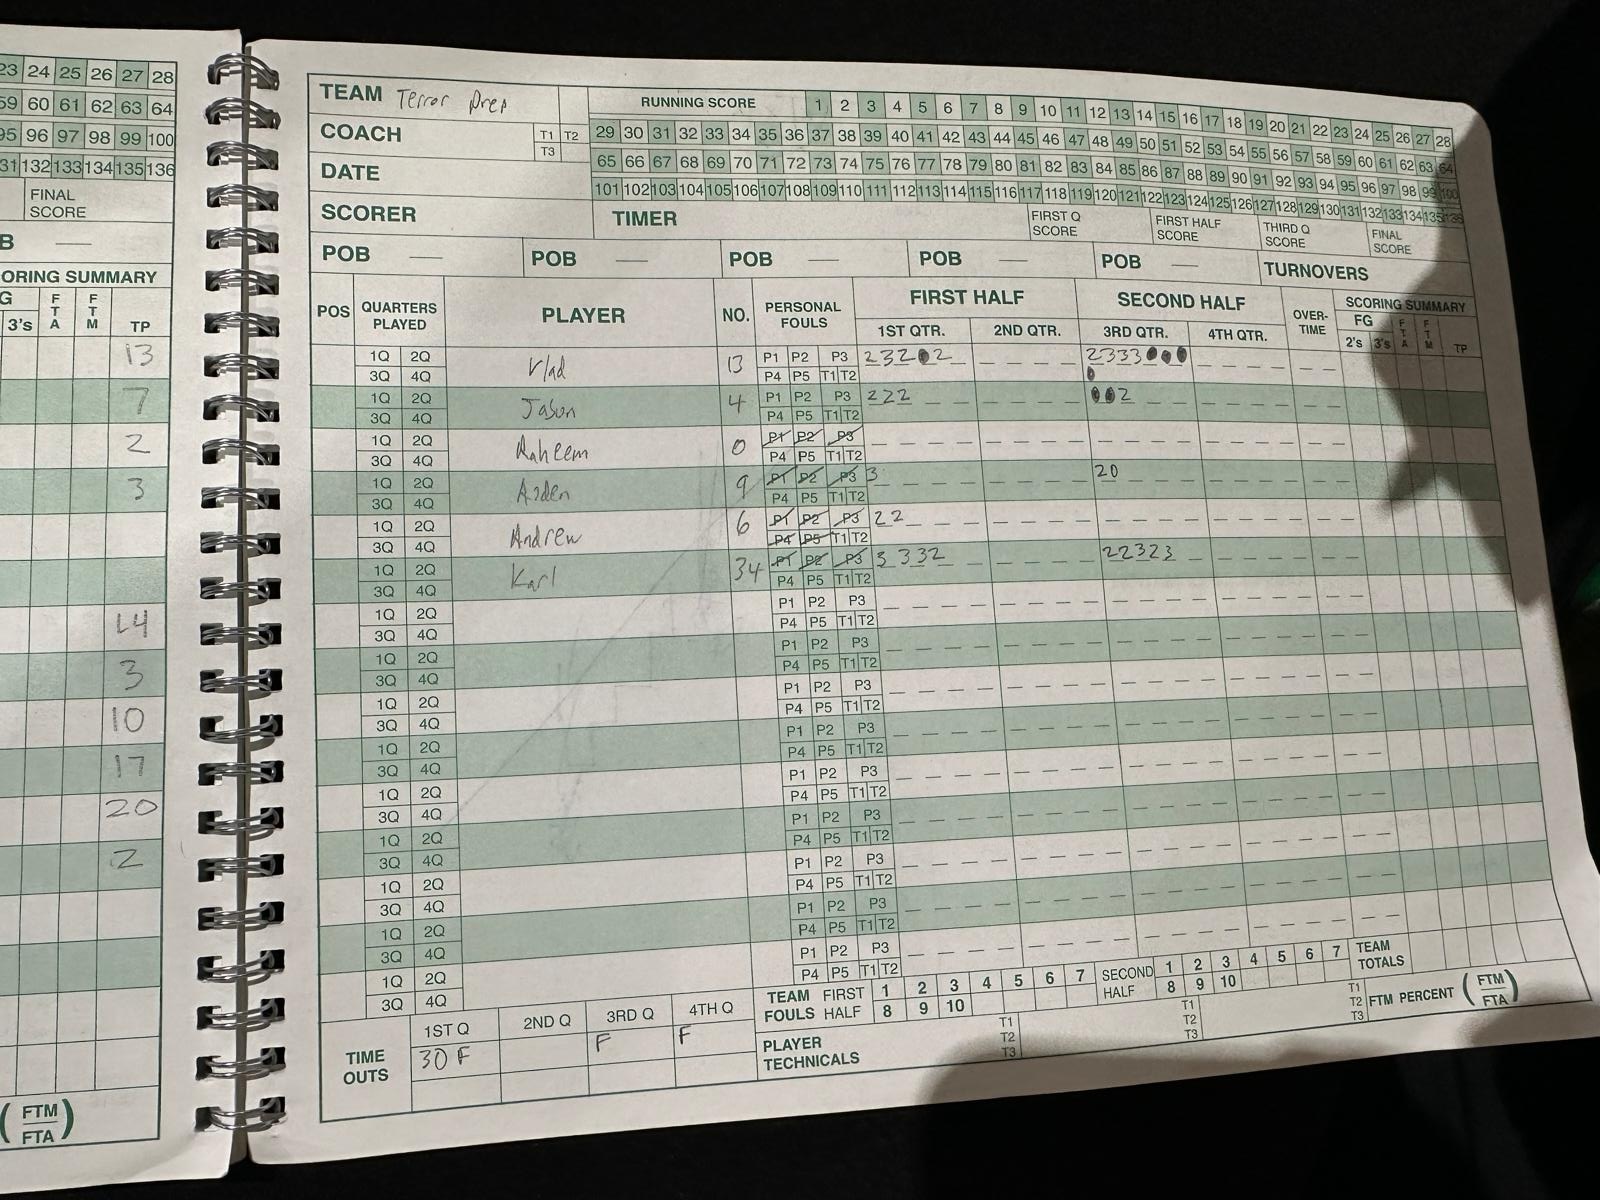 23 24 25 26 27 28
59 60 61 62 63 64
95 96 97 98 99 100
31 132 133 134 135 136
FINAL SCORE
B
ORING SUMMARY
G
3's FTA FTM TP
13
7
2
3
14
3
10
17
20
2
(FTM/FTA)
TEAM Terror Prep
COACH
T1 T2
T3
DATE
SCORER
TIMER
RUNNING SCORE 1 2 3 4 5 6 7 8 9 10 11 12 13 14 15 16 17 18 19 20 21 22 23 24 25 26 27 28
29 30 31 32 33 34 35 36 37 38 39 40 41 42 43 44 45 46 47 48 49 50 51 52 53 54 55 56 57 58 59 60 61 62 63 64
65 66 67 68 69 70 71 72 73 74 75 76 77 78 79 80 81 82 83 84 85 86 87 88 89 90 91 92 93 94 95 96 97 98 99 100
101 102 103 104 105 106 107 108 109 110 111 112 113 114 115 116 117 118 119 120 121 122 123 124 125 126 127 128 129 130 131 132 133 134 135 136
FIRST Q SCORE
FIRST HALF SCORE
THIRD Q SCORE
FINAL SCORE
POB POB POB POB POB TURNOVERS
POS QUARTERS PLAYED PLAYER NO. PERSONAL FOULS FIRST HALF SECOND HALF OVER-TIME SCORING SUMMARY
1ST QTR. 2ND QTR. 3RD QTR. 4TH QTR. FG 2's 3's FTA FTM TP
1Q 2Q Vlad 13 P1 P2 P3 232 2 2333
3Q 4Q P4 P5 T1 T2
1Q 2Q Jason 4 P1 P2 P3 222 2
3Q 4Q P4 P5 T1 T2
1Q 2Q Raheem 0 P1 P2 P3
3Q 4Q P4 P5 T1 T2
1Q 2Q Aiden 9 P1 P2 P3 3 20
3Q 4Q P4 P5 T1 T2
1Q 2Q Andrew 6 P1 P2 P3 22
3Q 4Q P4 P5 T1 T2
1Q 2Q Karl 34 P1 P2 P3 3332 22323
3Q 4Q P4 P5 T1 T2
1Q 2Q P1 P2 P3
3Q 4Q P4 P5 T1 T2
1Q 2Q P1 P2 P3
3Q 4Q P4 P5 T1 T2
1Q 2Q P1 P2 P3
3Q 4Q P4 P5 T1 T2
1Q 2Q P1 P2 P3
3Q 4Q P4 P5 T1 T2
1Q 2Q P1 P2 P3
3Q 4Q P4 P5 T1 T2
1Q 2Q P1 P2 P3
3Q 4Q P4 P5 T1 T2
1Q 2Q P1 P2 P3
3Q 4Q P4 P5 T1 T2
1Q 2Q P1 P2 P3
3Q 4Q P4 P5 T1 T2
1Q 2Q P1 P2 P3
3Q 4Q P4 P5 T1 T2
TIME OUTS 1ST Q 2ND Q 3RD Q 4TH Q
30 F F F
TEAM FOULS FIRST HALF 1 2 3 4 5 6 7 8 9 10
SECOND HALF 1 2 3 4 5 6 7 8 9 10
TEAM TOTALS
PLAYER TECHNICALS T1 T2 T3 T1 T2 T3 T1 T2 T3
FTM PERCENT (FTM/FTA)